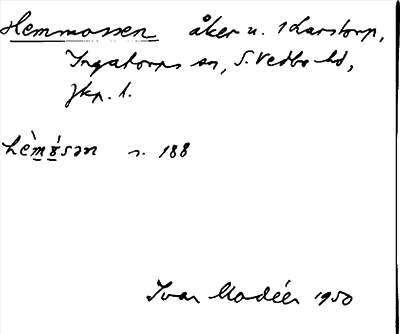 Hemmossen åker u. 1 Larstorp,
Ingatorps sn, S. Vedbo hd,
Jkp. l.
hèmɷ́sən n. 188
Ivar Modéer 1950